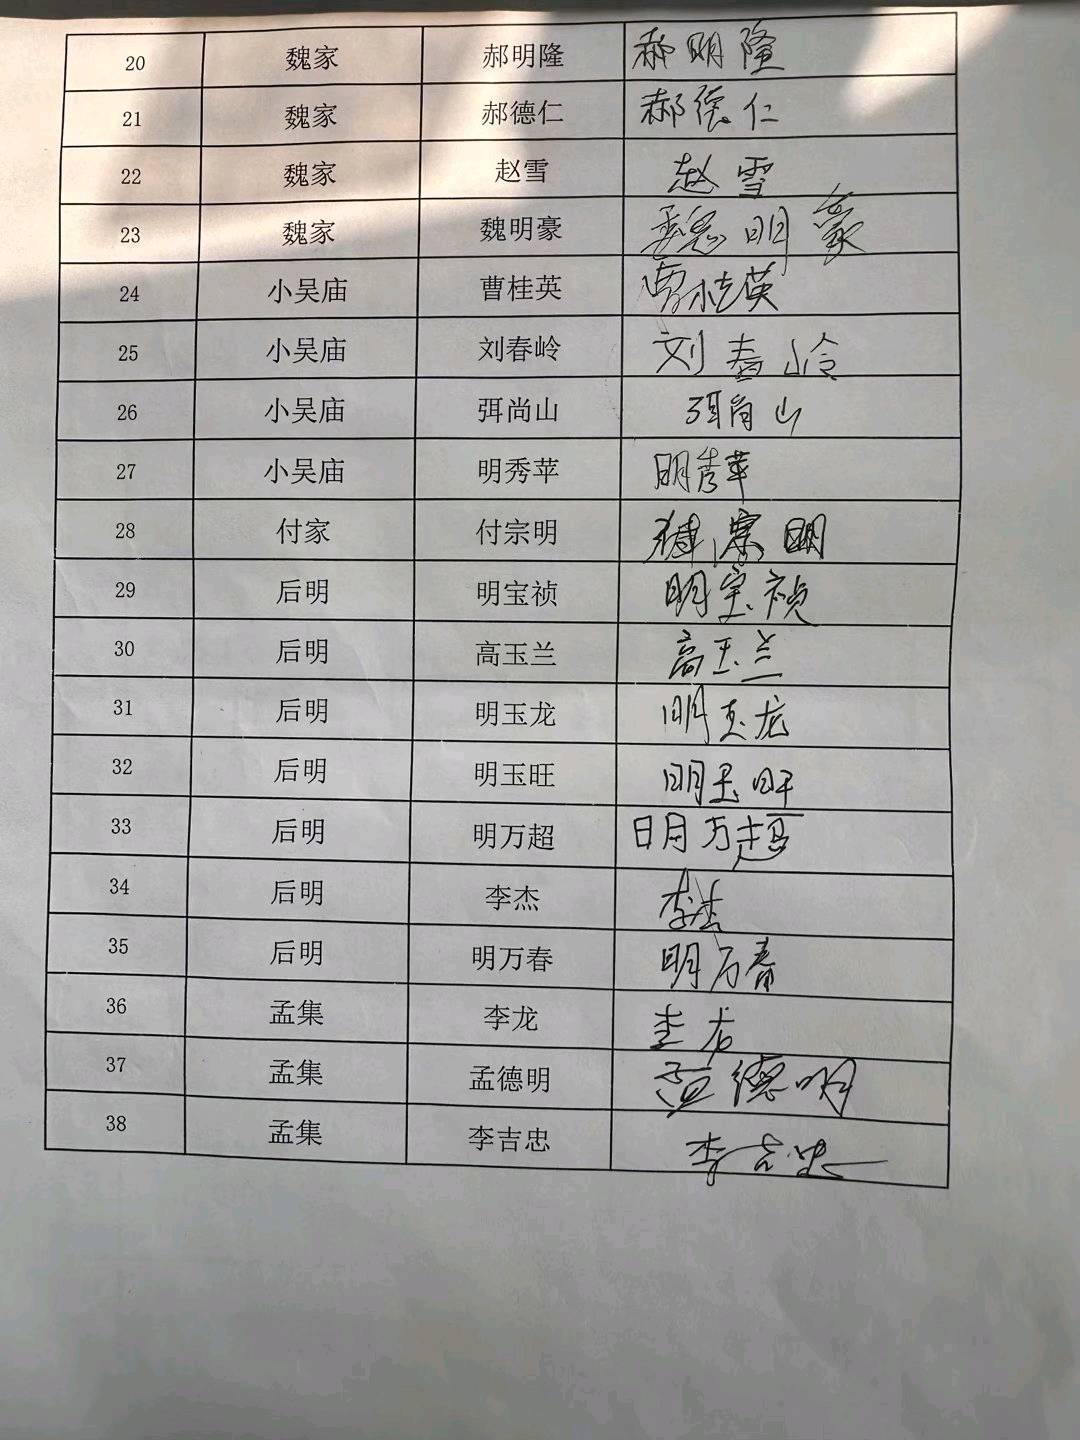 20 魏家 郝明隆 郝明隆
21 魏家 郝德仁 郝德仁
22 魏家 赵雪 赵雪
23 魏家 魏明豪 魏明豪
24 小吴庙 曹桂英 曹桂英
25 小吴庙 刘春岭 刘春岭
26 小吴庙 弭尚山 弭尚山
27 小吴庙 明秀苹 明秀苹
28 付家 付宗明 宗明
29 后明 明宝祯 明宝祯
30 后明 高玉兰 高玉兰
31 后明 明玉龙 明玉龙
32 后明 明玉旺 明玉旺
33 后明 明万超 明万超
34 后明 李杰 李杰
35 后明 明万春 明万春
36 孟集 李龙 李龙
37 孟集 孟德明 孟德明
38 孟集 李吉忠 李吉忠